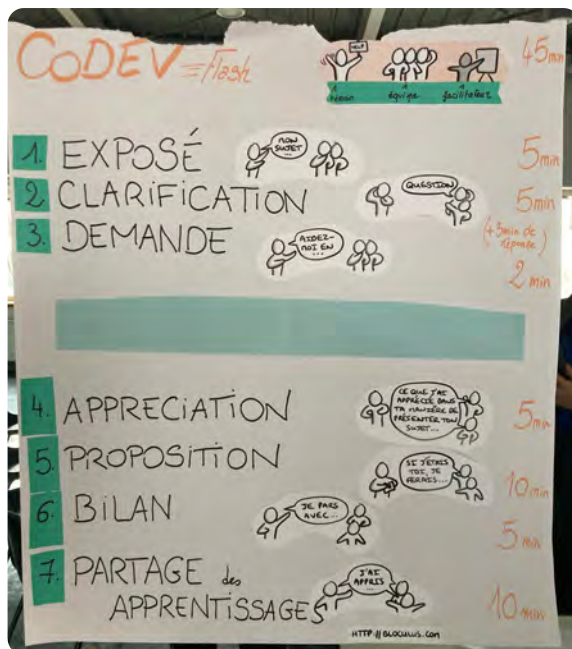 CODEV = Flash
45 min
HELP
témoin équipe facilitateur
1. EXPOSÉ
MON SUJET ...
5 min
2 CLARIFICATION
QUESTION
5 min
(+3 min de réponse)
3. DEMANDE
AIDEZ-
MOI EN
...
2 min
4. APPRECIATION
CE QUE J'AI
APPRÉCIÉ DANS
TA MANIÈRE DE
PRÉSENTER TON
SUJET...
5 min
5. PROPOSITION
SI J'ÉTAIS
TOI, JE
FERAIS...
10 min
6. BILAN
JE PARS
AVEC...
5 min
7. PARTAGE des
APPRENTISSAGES
J'AI
APPRIS
...
10 min
HTTP://BLOCULUS.COM